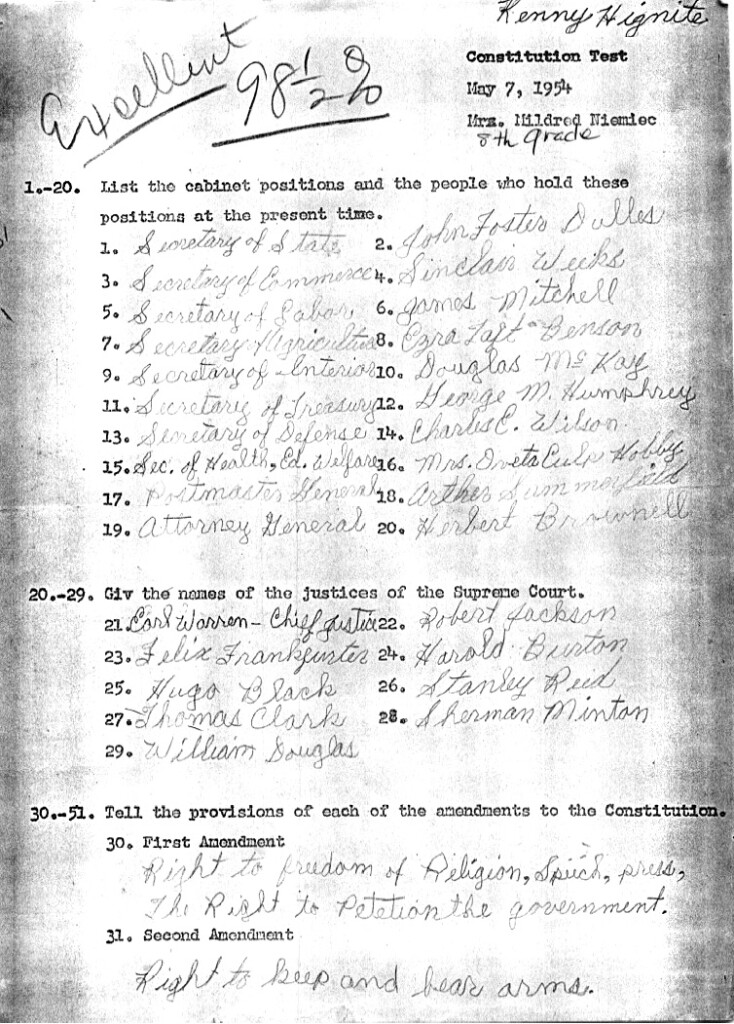 Kenny Hignite
Excellent
98 1/2 %
Constitution Test
May 7, 1954
Mrs. Mildred Niemiec
8th grade
1.-20. List the cabinet positions and the people who hold these
positions at the present time.
1. Secretary of State 2. John Foster Dulles
3. Secretary of Commerce 4. Sinclair Weeks
5. Secretary of Labor 6. James Mitchell
7. Secretary Agriculture 8. Ezra Taft Benson
9. Secretary of Interior 10. Douglas McKay
11. Secretary of Treasury 12. George M. Humphrey
13. Secretary of Defense 14. Charles E. Wilson
15. Sec. of Health, Ed. Welfare 16. Mrs. Oveta Culp Hobby
17. Postmaster General 18. Arther Summerfield
19. Attorney General 20. Herbert Brownell
20.-29. Giv the names of the justices of the Supreme Court.
21. Earl Warren - Chief Justice 22. Robert Jackson
23. Felix Frankfurter 24. Harold Burton
25. Hugo Black 26. Stanley Reed
27. Thomas Clark 28. Sherman Minton
29. William Douglas
30.-51. Tell the provisions of each of the amendments to the Constitution.
30. First Amendment
Right to freedom of Religion, Speech, press,
The Right to Petetion the government.
31. Second Amendment
Right to keep and bear arms.